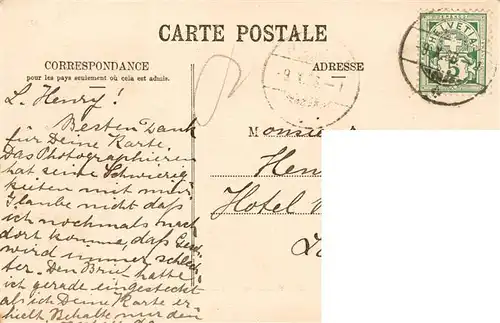 CARTE POSTALE
CORRESPONDANCE
pour les pays seulement où cela est admis.
ADRESSE
HELVETIA
5
L. Henry!
Besten Dank
für Deine Karte.
Das Photographieren
hat seine Schwierig
keiten mit mir.
Glaube nicht daß
ich nochmals nach
dort komme, daß
wird immer schlech-
ter. Den Brief hatte
ich gerade eingesteckt
als ich Deine Karte er-
hielt. Behalte nur den
Monsieur
Hen
Hotel